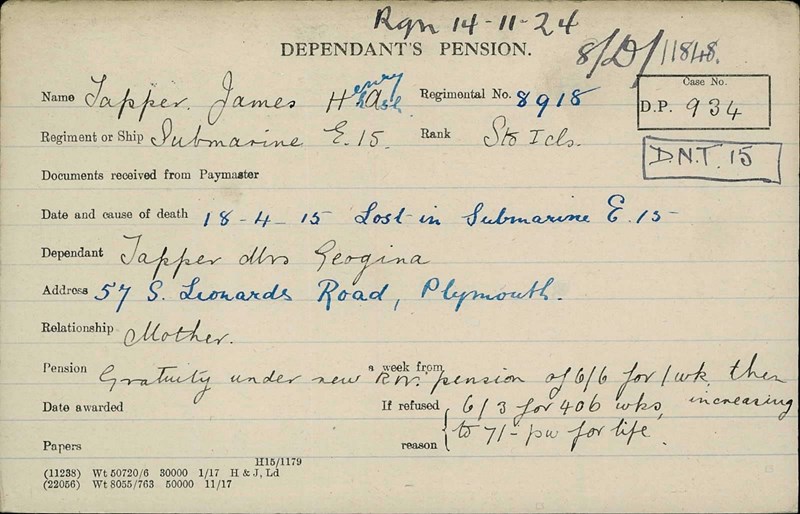 Rgn 14-11-24
DEPENDANT'S PENSION.
8/D/11848.
Case No.
D.P. 934
D.N.T. 15
Name Tapper. James Henry Regimental No. 8918
Regiment or Ship Submarine E.15. Rank Sto I cls.
Documents received from Paymaster
Date and cause of death 18-4-15 Lost in Submarine E.15
Dependant Tapper Mrs Geogina
Address 57 S. Leonards Road, Plymouth.
Relationship Mother.
Pension Gratuity under new a week from pension of 6/6 for 1 wk, then
Date awarded If refused 6/3 for 406 wks, increasing
Papers reason to 7/- pw for life.
H15/1179
(11238) Wt 50720/6 30000 1/17 H & J, Ld
(22056) Wt 8055/763 50000 11/17